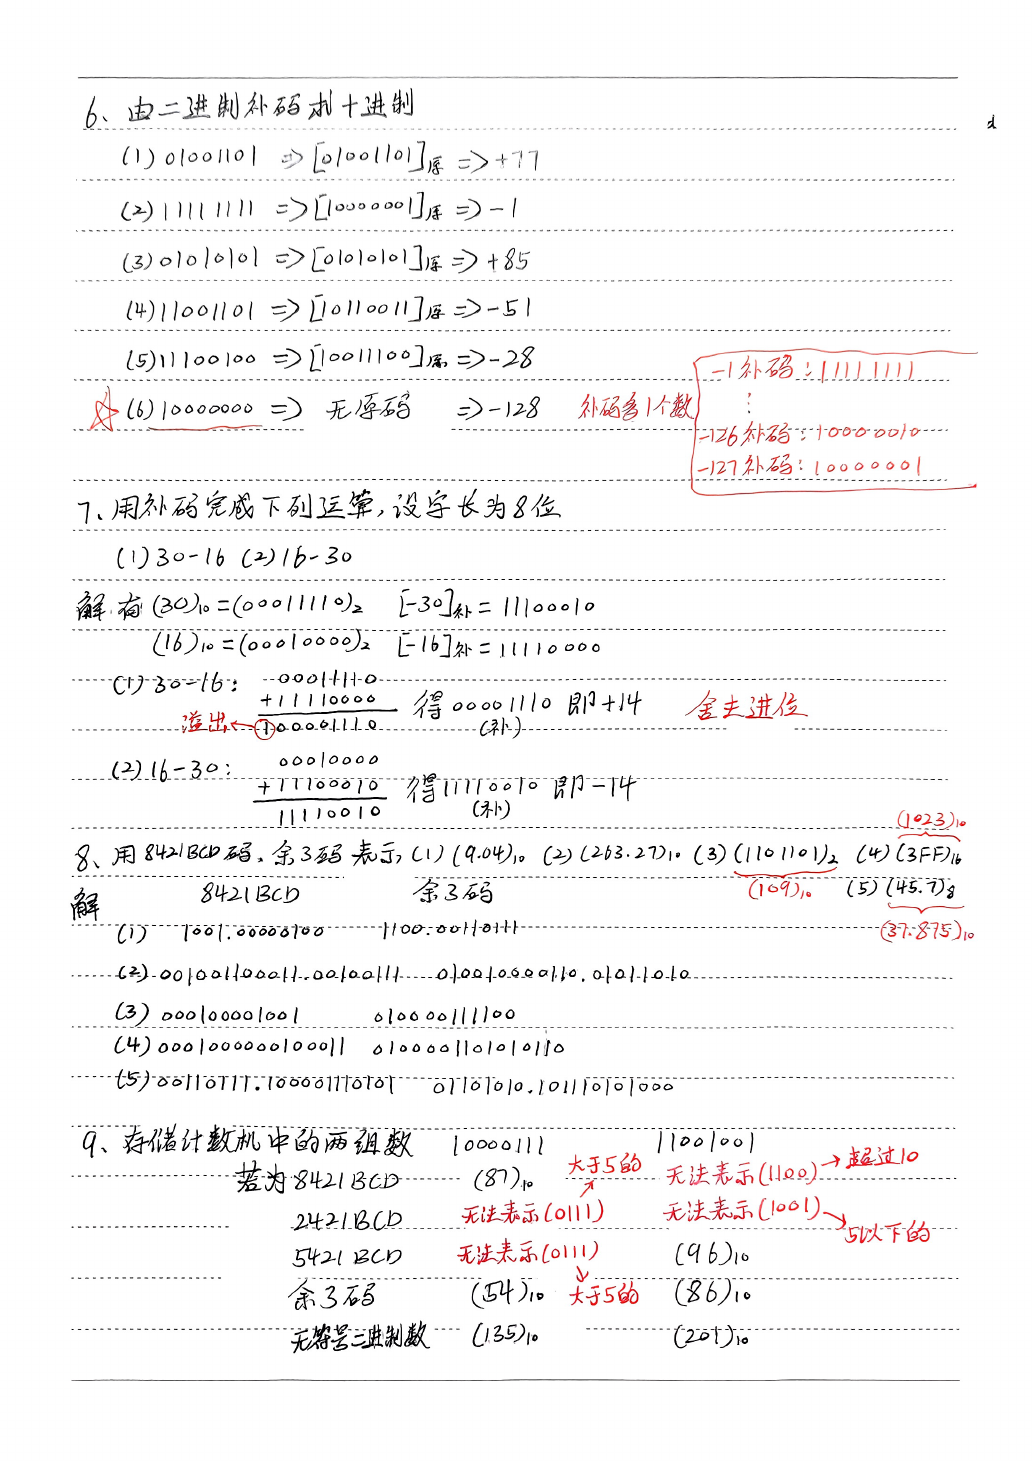 d
6、由二进制补码求十进制
(1) 01001101 => [01001101]原 => +77
(2) 11111111 => [10000001]原 => -1
(3) 01010101 => [01010101]原 => +85
(4) 11001101 => [10110011]原 => -51
(5) 11100100 => [10011100]原 => -28
-1补码:11111111
⋮
☆ (6) 10000000 => 无原码 => -128 补码多1个数
-126补码:10000010
-127补码:10000001
7、用补码完成下列运算,设字长为8位
(1) 30-16 (2) 16-30
解 有 (30)10=(00011110)2 [-30]补=11100010
(16)10=(00010000)2 [-16]补=11110000
(1) 30-16: 00011110
+11110000 得00001110 即+14 舍去进位
溢出←100001110 (补)
(2) 16-30: 00010000
+11100010 得11110010 即-14
11110010 (补)
(1023)10
8、用8421BCD码、余3码表示, (1) (9.04)10 (2) (263.27)10 (3) (1101101)2 (4) (3FF)16
解 8421BCD 余3码 (109)10 (5) (45.7)8
(1) 1001.00000100 1100.00110111 (37.875)10
(2) 001001100011.00100111 010010000110.01011010
(3) 000100001001 010000111100
(4) 0001000000100011 0100001101010110
(5) 00110111.100001110101 01101010.101110101000
9、存储计数机中的两组数 10000111 11001001
若为8421BCD (87)10 大于5的 无法表示(1100)→超过10
2421BCD 无法表示(0111) 无法表示(1001)
5421BCD 无法表示(0111) (96)10 5以下的
余3码 (54)10 大于5的 (86)10
无符号二进制数 (135)10 (201)10